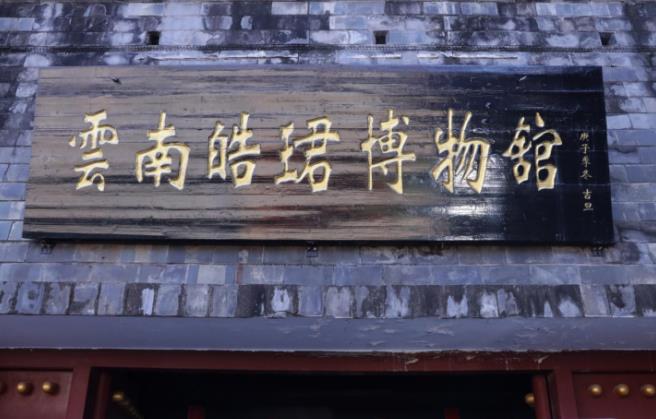 雲南皓珺博物館
庚子季冬 吉旦